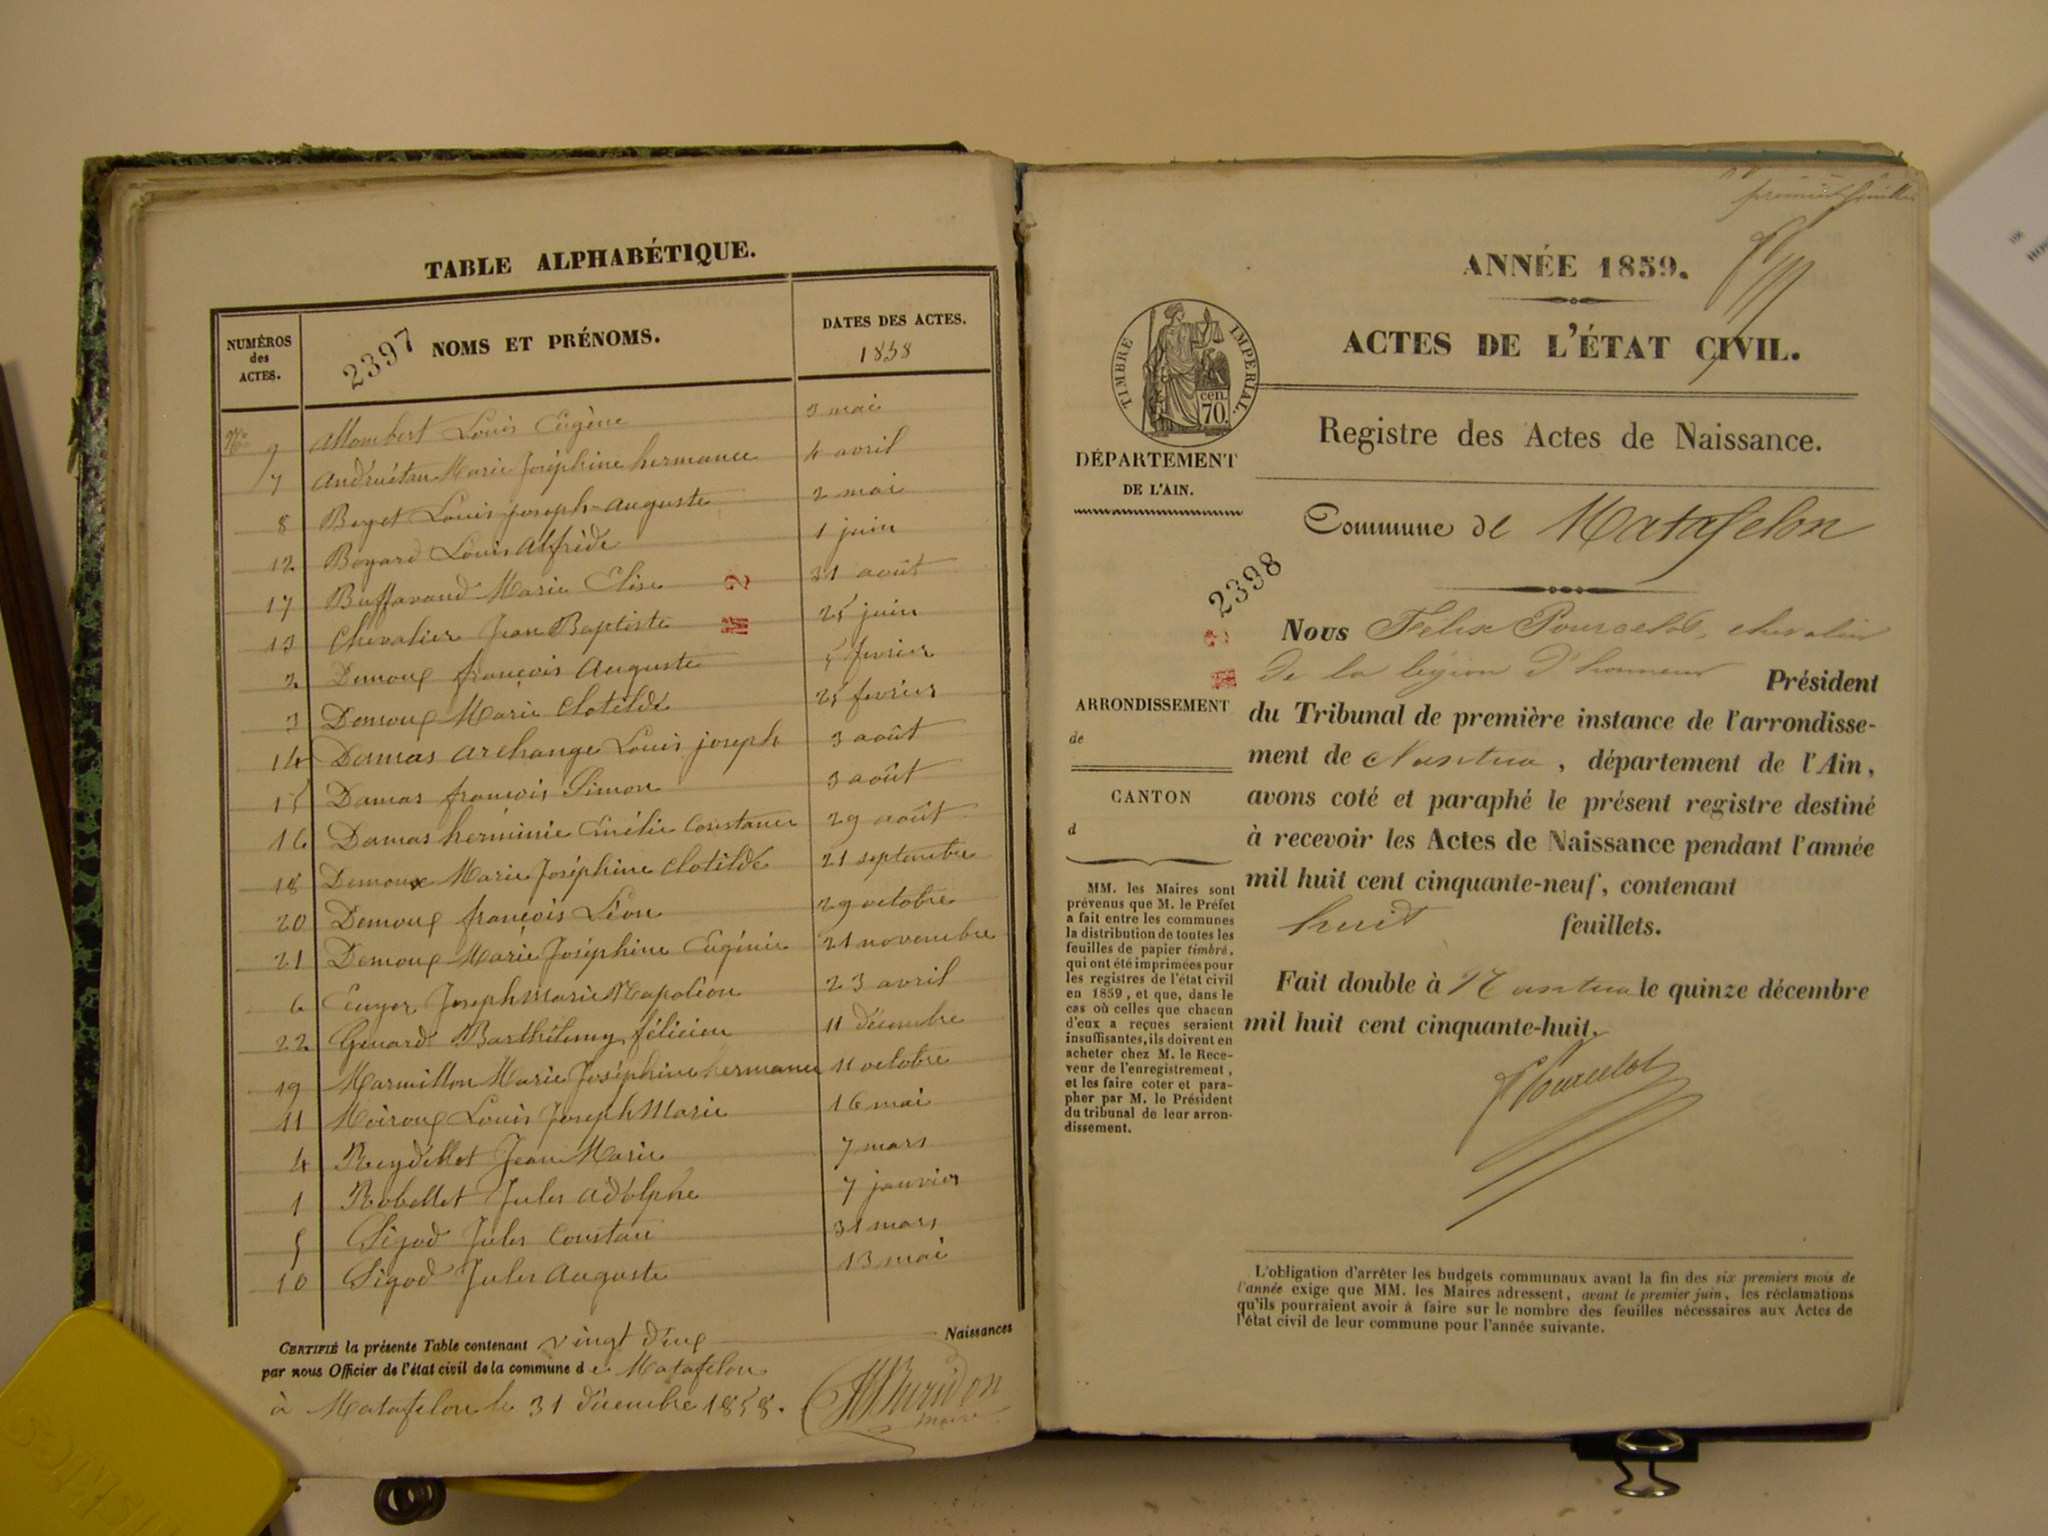 TABLE ALPHABÉTIQUE.
NUMÉROS des ACTES.
2397 NOMS ET PRÉNOMS.
DATES DES ACTES.
1858
9 Allombert Louis Eugène 3 mai
7 Andruétan Marie Joséphine hermance 4 avril
8 Beyet Louis joseph-auguste 2 mai
12 Bogard Louis Alfrède 1 juin
17 Buffavand Marie Elise 31 août
13 Chevalier Jean Baptiste 25 juin
2 Demoux françois Auguste 5 fevrier
3 Demoux Marie Clotilde 25 fevrier
14 Damas archange Louis joseph 3 août
15 Damas françois Simon 3 août
16 Damas herminie Emélie Constance 29 août
18 Demoux Marie Joséphine Clotilde 21 septembre
20 Demoux françois Léon 29 octobre
21 Demoux Marie Joséphine Eugénie 21 novembre
6 Joseph Marie Napoléon 23 avril
22 Genard Barthélemy félicien 11 décembre
19 Marmillon Marie Joséphine hermance 11 octobre
11 Moiroux Louis Joseph Marie 16 mai
4 Reydellet Jean Marie 7 mars
1 Robellet Jules adolphe 7 janvier
5 Sigod Jules Constan 31 mars
10 Sigod Jules Auguste 13 mai
M 2
CERTIFIÉ la présente Table contenant vingt deux Naissances
par nous Officier de l'état civil de la commune de Matafelon
à Matafelon le 31 décembre 1858.
maire
premier feuillet
ANNÉE 1859.
ACTES DE L'ÉTAT CIVIL.
TIMBRE IMPÉRIAL.
cen.
70.
Registre des Actes de Naissance.
DÉPARTEMENT
DE L'AIN.
Commune de Matafelon
2398
M 2
ARRONDISSEMENT
de
CANTON
d
MM. les Maires sont
prévenus que M. le Préfet
a fait entre les communes
la distribution de toutes les
feuilles de papier timbré,
qui ont été imprimées pour
les registres de l'état civil
en 1859, et que, dans le
cas où celles que chacun
d'eux a reçues seraient
insuffisantes, ils doivent en
acheter chez M. le Rece-
veur de l'enregistrement,
et les faire coter et para-
pher par M. le Président
du tribunal de leur arron-
dissement.
Nous Félix Pourcelot, chevalier
de la légion d'honneur Président
du Tribunal de première instance de l'arrondisse-
ment de Nantua, département de l'Ain,
avons coté et paraphé le présent registre destiné
à recevoir les Actes de Naissance pendant l'année
mil huit cent cinquante-neuf, contenant
huit feuillets.
Fait double à Nantua le quinze décembre
mil huit cent cinquante-huit.
F Pourcelot
L'obligation d'arrêter les budgets communaux avant la fin des six premiers mois de
l'année exige que MM. les Maires adressent, avant le premier juin, les réclamations
qu'ils pourraient avoir à faire sur le nombre des feuilles nécessaires aux Actes de
l'état civil de leur commune pour l'année suivante.